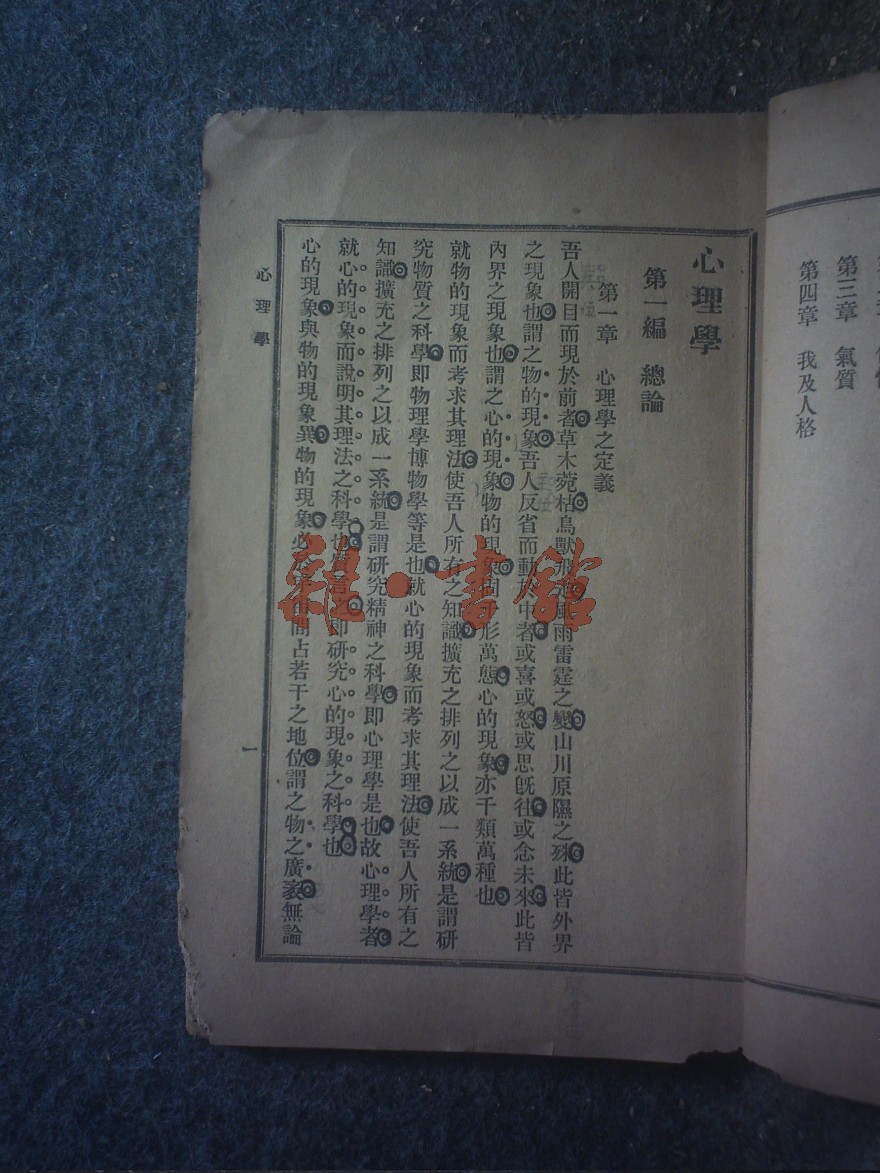 第三章　氣質
第四章　我及人格
心理學
第一編　總論
第一章　心理學之定義
吾人開目而現於前者草木菀枯鳥獸風雨雷霆之變山川原隰之殊此皆外界
之現象也謂之物的現象吾人反省而動於中者或喜或怒或思既往或念未來此皆
內界之現象也謂之心的現象物的現象固形萬態心的現象亦千類萬種也
就物的現象而考求其理法使吾人所有之知識擴充之排列之以成一系統是謂研
究物質之科學即物理學博物學等是也就心的現象而考求其理法使吾人所有之
知識擴充之排列之以成一系統是謂研究精神之科學即心理學是也故心理學者
就心的現象而說明其理法之科學也言之即研究心的現象之科學也
心的現象與物的現象異物的現象必於間占若干之地位謂之物之廣袤無論
心理學
一
雜·書館